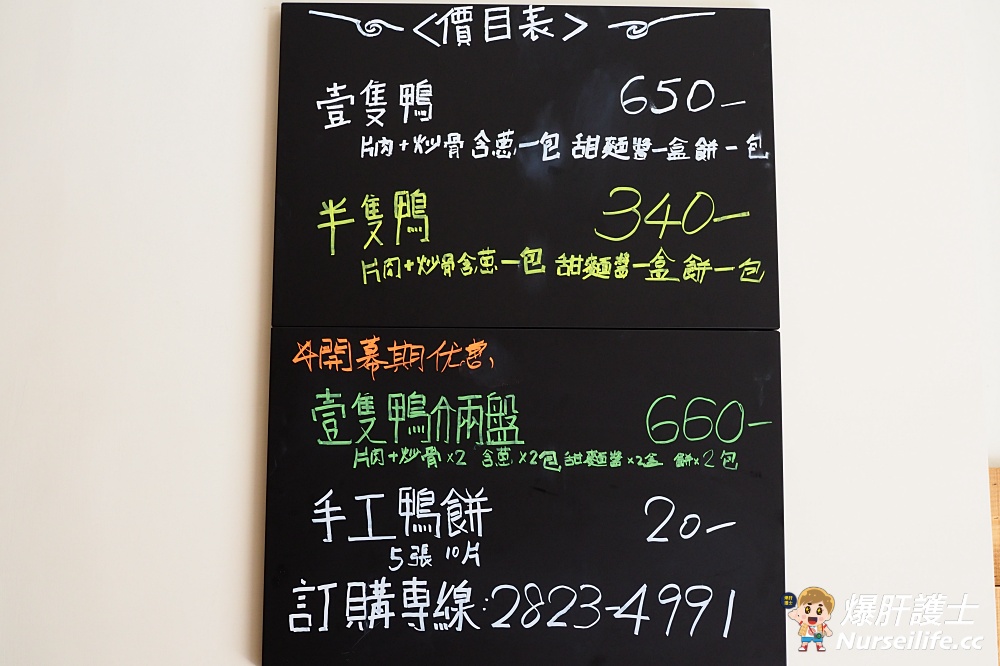 <價目表>
壹隻鴨 650-
片肉+炒骨 含蔥一包 甜麵醬一盒 餅一包
半隻鴨 340-
片肉+炒骨含蔥一包 甜麵醬一盒 餅一包
開幕期优惠,
壹隻鴨分兩盤 660-
片肉+炒骨×2 含蔥×2包 甜麵醬×2盒 餅×2包
手工鴨餅 20-
5張 10片
訂購專線:2823-4991
爆肝護士
Nurseilife.cc